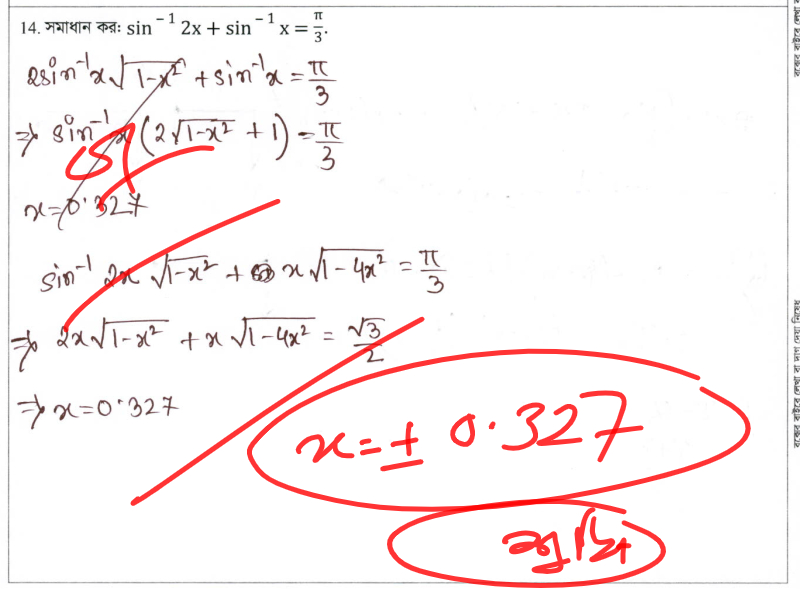 14. সমাধান কর: sin⁻¹ 2x + sin⁻¹ x = π/3.
2sin⁻¹x√(1-x²) + sin⁻¹x = π/3
⇒ sin⁻¹ x (2√(1-x²) + 1) = π/3
x=0.327
sin⁻¹ 2x √(1-x²) + x √(1-4x²) = π/3
⇒ 2x√(1-x²) + x √(1-4x²) = √3/2
⇒ x=0.327
x=± 0.327
রঙের বাইরে লেখা বা দাগ দেয়া নিষেধ